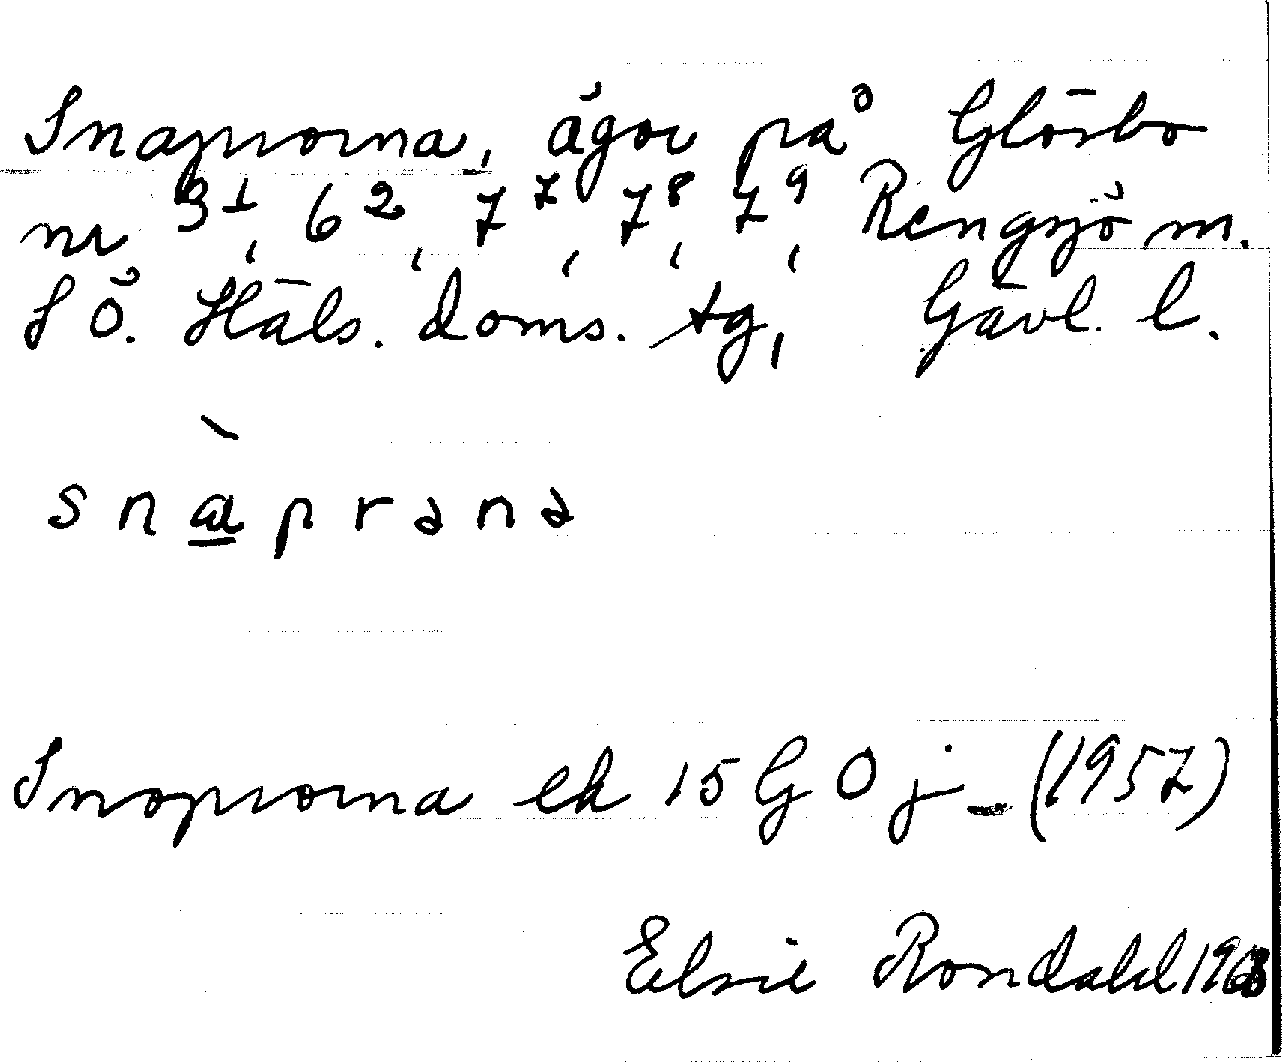 Snaprorna, ägor på Glösbo
nr 3¹, 6², 7⁷, 7⁸, 7⁹, Rengsjö sn.
S Ö. Häls. doms. tg, Gävl. l.
snɑ̀prana
Snoprorna ek 15 G O j – (1957)
Elsie Rondahl 1963